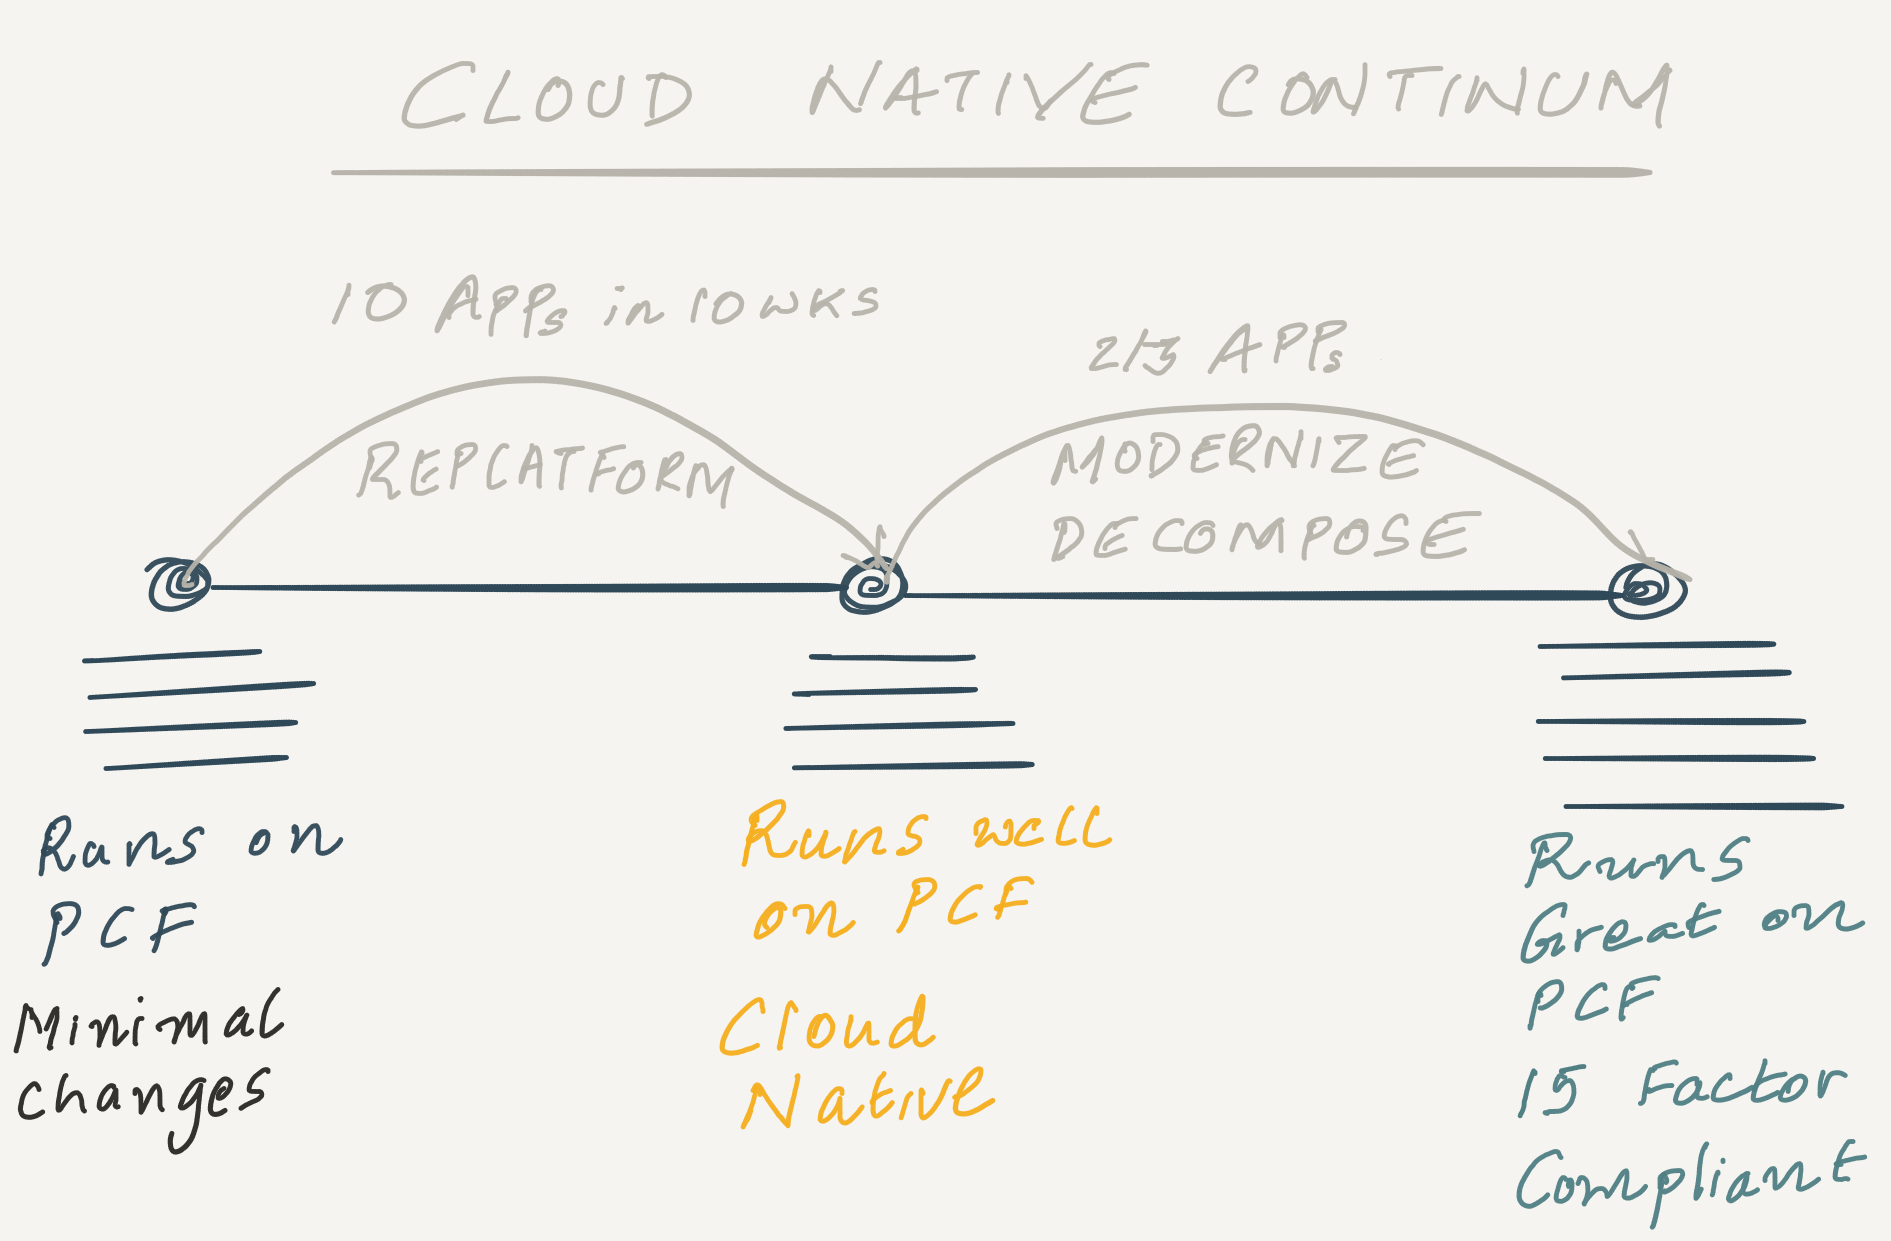 CLOUD NATIVE CONTINUUM
10 APPs in 10 wks
2/3 APPs
REPLATFORM
MODERNIZE
DECOMPOSE
Runs on
PCF
Minimal
changes
Runs well
on PCF
Cloud
Native
Runs
Great on
PCF
15 Factor
Compliant